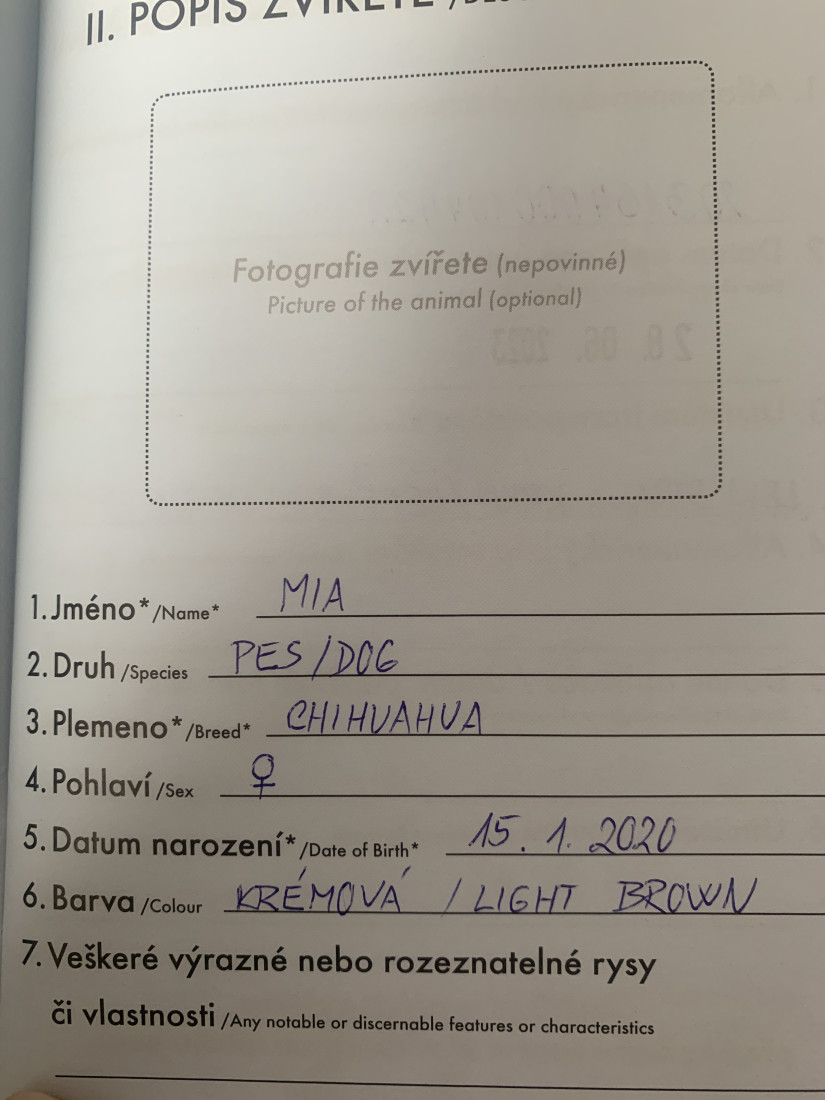 II. POPIS ZVÍŘETE
Fotografie zvířete (nepovinné)
Picture of the animal (optional)
28. 06. 2023
1. Jméno* /Name* MIA
2. Druh /Species PES/DOG
3. Plemeno* /Breed* CHIHUAHUA
4. Pohlaví /Sex ♀
5. Datum narození* /Date of Birth* 15. 1. 2020
6. Barva /Colour KRÉMOVÁ / LIGHT BROWN
7. Veškeré výrazné nebo rozeznatelné rysy
či vlastnosti /Any notable or discernable features or characteristics